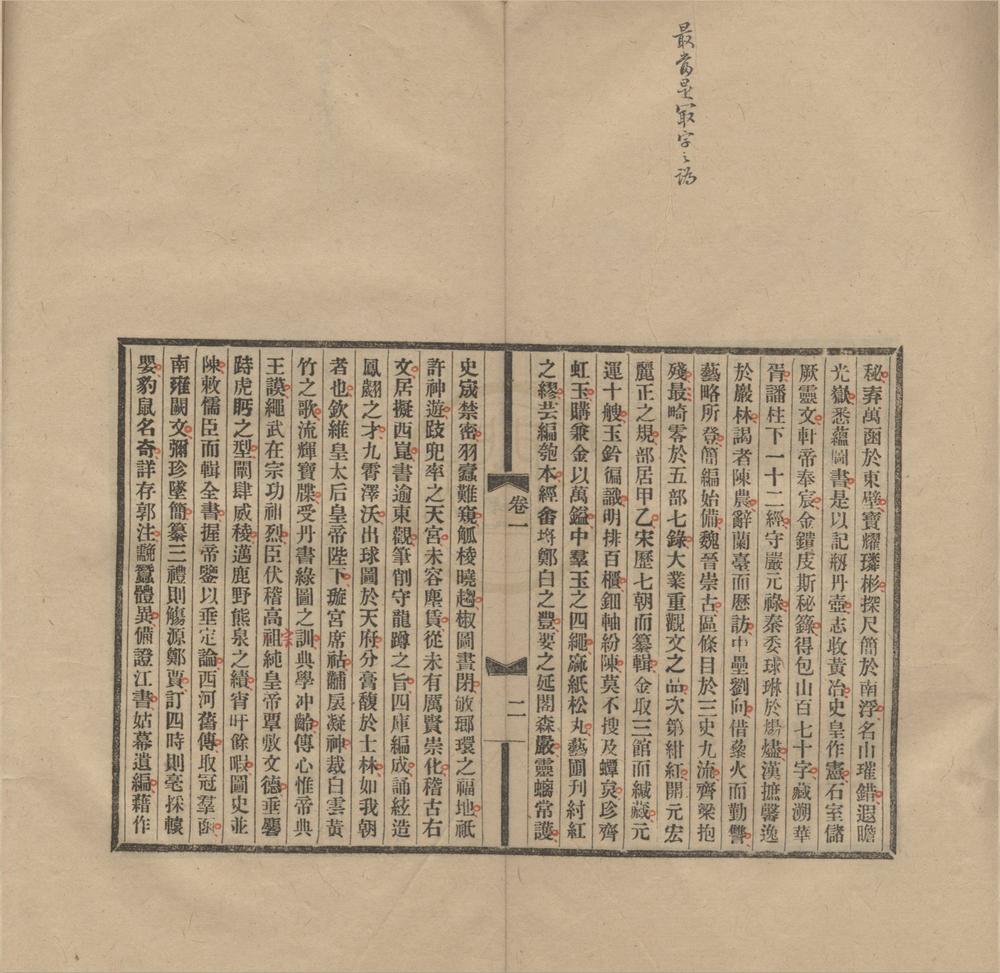 最當是冣字之譌
秘弆萬函於東壁寶耀璘彬探尺簡於南浮名山璀錯遐瞻
光嶽悉蘊圖書是以記剏丹壺志收黃冶史皇作憲石室儲
厥靈文軒帝奉宸金鐀庋斯秘籙得包山百七十字藏溯華
胥譒柱下一十二經守嚴元祿秦委球琳於煬燼漢摭馨逸
於嚴林謁者陳農辭蘭臺而歷訪中壘劉向借藜火而勤讐
藝略所登簡編始備魏晉崇古區條目於三吏九流齊梁抱
殘最畸零於五部七錄大業重觀文之品次第紺紅開元宏
麗正之規部居甲乙宋歷七朝而纂輯金取三館而緘藏元
運十艘玉鈴徧識明排百櫃鈿軸紛陳莫不搜及蟫衺珍齊
虹玉購兼金以萬鎰中羣玉之四繩嬴紙松丸藝圃刋紂紅
之繆芸編匏本經畬埒鄭白之豐要之延閣森嚴靈蝺常護
卷一
二
史宬禁密羽蠹難窺觚棱曉趨椒圖晝閉敂瑯環之福地祇
許神遊跂兜率之天宮未容塵賃從未有厲賢崇化稽古右
文居擬西崑書逾東觀筆削守龍蹲之旨四庫編成誦絃造
鳳翽之才九霄澤沃出球圖於天府分膏馥於士林如我朝
者也欽維皇太后皇帝陛下璇宮席祜黼扆凝神裁白雲黃
竹之歌流輝寶牒受丹書綠圖之訓典學冲齡傳心惟帝典
王謨繩武在宗功祖烈臣伏稽高祖純皇帝覃敷文德垂罄
宗
跱虎眄之型闡肆威棱邁鹿野熊泉之績宵旰餘暇圖史並
陳敕儒臣而輯全書握帝鑒以垂定論西河舊傳取冠羣函
南雍闕文彌珍墜簡纂三禮則觴源鄭賈訂四時則毫採轅
嬰豹鼠名奇詳存郭注鷾蠶體異備證江書姑幕遺編藉作